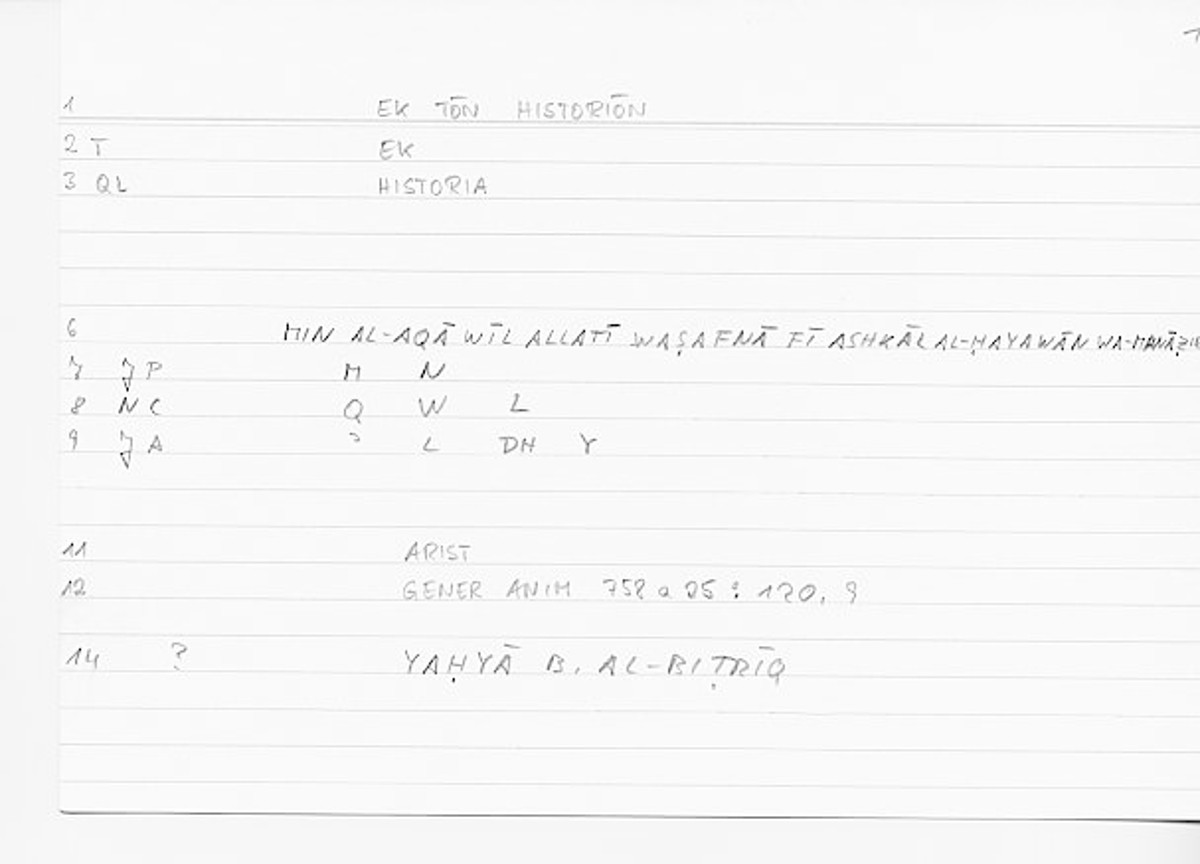 1 EK TŌN HISTORIŌN
2 T EK
3 QL HISTORIA
6 MIN AL-AQĀWĪL ALLATĪ WAṢAFNĀ FĪ ASHKĀL AL-ḤAYAWĀN
7 JP M N
8 NC Q W L
9 JA ʾ L DH Y
11 ARIST
12 GENER ANIM 758 a 25 : 120, 9
14 ? YAḤYĀ B. AL-BIṬRĪQ